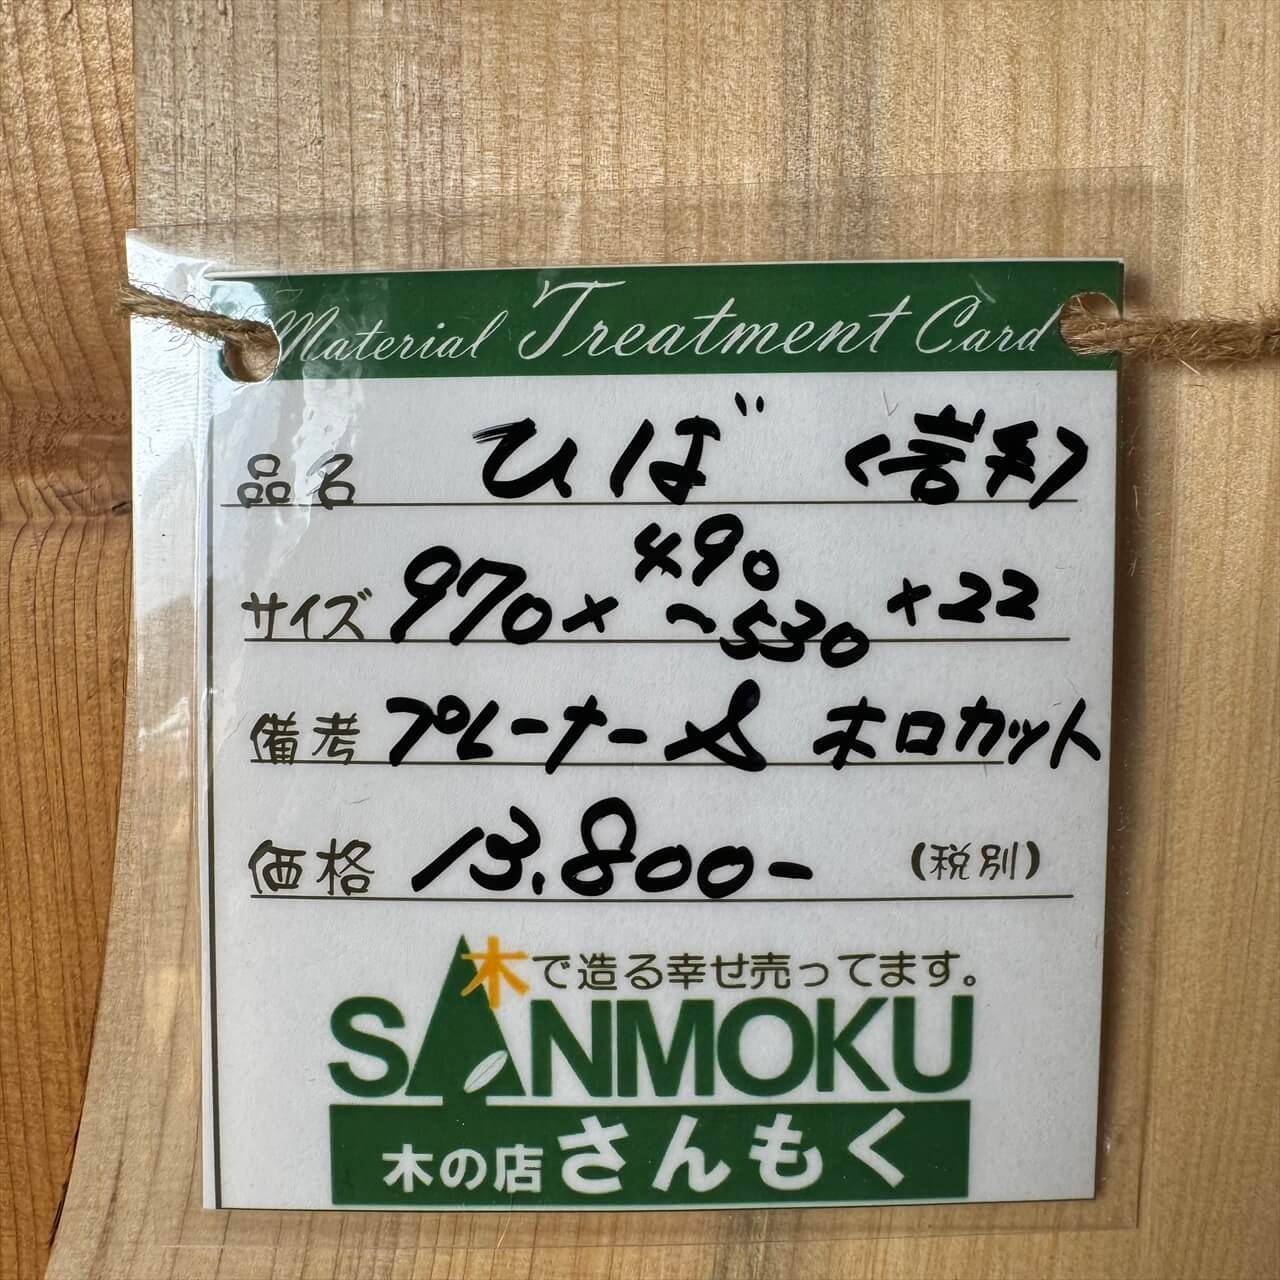 Material Treatment Card
品名 ひば (岩手)
サイズ 970× 490 ~530 ×22
備考 プレーナー〆 木口カット
価格 13,800- (税別)
木で造る幸せ売ってます。
SANMOKU
木の店 さんもく